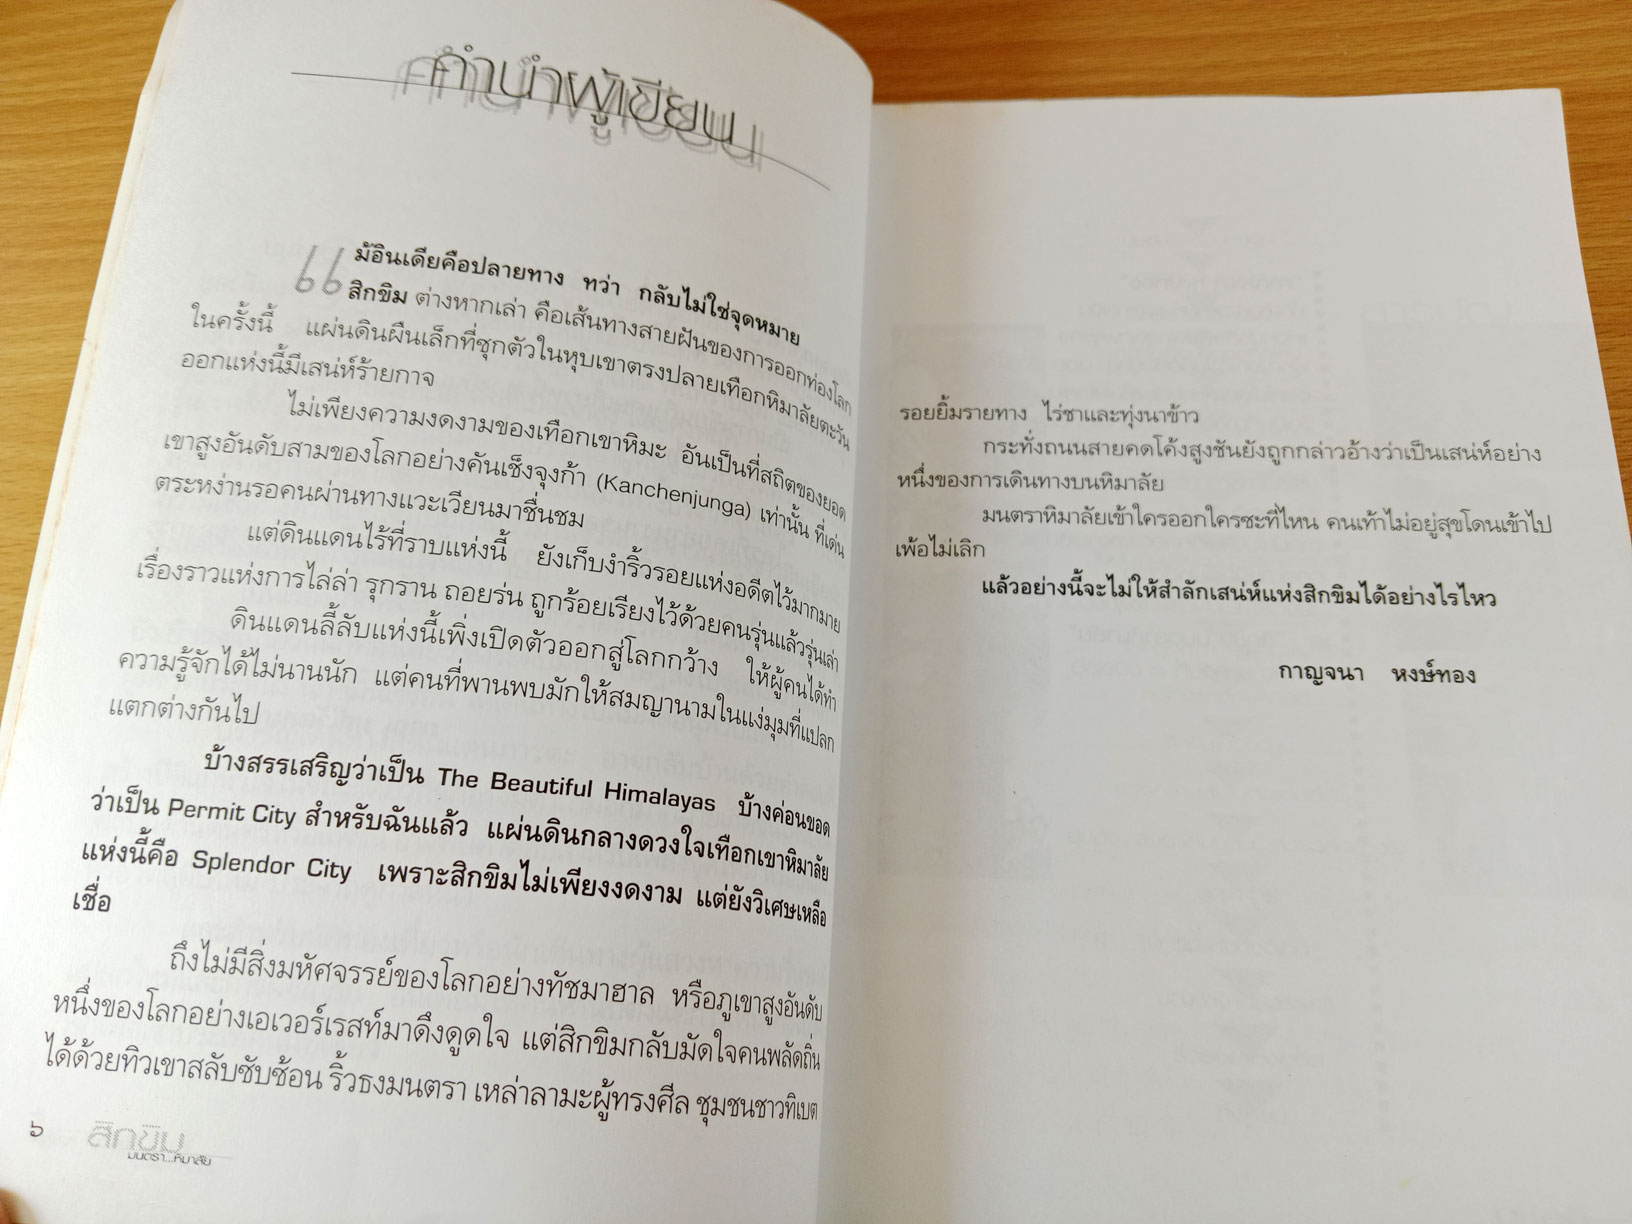 คำนำผู้เขียน
แม้อินเดียคือปลายทาง ทว่า กลับไม่ใช่จุดหมาย
สิกขิม ต่างหากเล่า คือเส้นทางสายฝันของการออกท่องโลก
ในครั้งนี้ แผ่นดินผืนเล็กที่ซุกตัวในหุบเขาตรงปลายเทือกหิมาลัยตะวัน
ออกแห่งนี้มีเสน่ห์ร้ายกาจ
ไม่เพียงความงดงามของเทือกเขาหิมะ อันเป็นที่สถิตของยอด
เขาสูงอันดับสามของโลกอย่างคันเช็งจุงก้า (Kanchenjunga) เท่านั้น ที่เด่น
ตระหง่านรอคนผ่านทางแวะเวียนมาชื่นชม
แต่ดินแดนไร้ที่ราบแห่งนี้ ยังเก็บงำริ้วรอยแห่งอดีตไว้มากมาย
เรื่องราวแห่งการไล่ล่า รุกราน ถอยร่น ถูกร้อยเรียงไว้ด้วยคนรุ่นแล้วรุ่นเล่า
ดินแดนลี้ลับแห่งนี้เพิ่งเปิดตัวออกสู่โลกกว้าง ให้ผู้คนได้ทำ
ความรู้จักได้ไม่นานนัก แต่คนที่พานพบมักให้สมญานามในแง่มุมที่แปลก
แตกต่างกันไป
บ้างสรรเสริญว่าเป็น The Beautiful Himalayas บ้างค่อนขอด
ว่าเป็น Permit City สำหรับฉันแล้ว แผ่นดินกลางดวงใจเทือกเขาหิมาลัย
แห่งนี้คือ Splendor City เพราะสิกขิมไม่เพียงงดงาม แต่ยังวิเศษเหลือ
เชื่อ
ถึงไม่มีสิ่งมหัศจรรย์ของโลกอย่างทัชมาฮาล หรือภูเขาสูงอันดับ
หนึ่งของโลกอย่างเอเวอร์เรสท์มาดึงดูดใจ แต่สิกขิมกลับมัดใจคนพลัดถิ่น
ได้ด้วยทิวเขาสลับซับซ้อน ริ้วธงมนตรา เหล่าลามะผู้ทรงศีล ชุมชนชาวทิเบต
๖ สิกขิม
มนตรา...หิมาลัย
รอยยิ้มรายทาง ไร่ชาและทุ่งนาข้าว
กระทั่งถนนสายคดโค้งสูงชันยังถูกกล่าวอ้างว่าเป็นเสน่ห์อย่าง
หนึ่งของการเดินทางบนหิมาลัย
มนตราหิมาลัยเข้าใครออกใครซะที่ไหน คนเท้าไม่อยู่สุขโดนเข้าไป
เพ้อไม่เลิก
แล้วอย่างนี้จะไม่ให้สำลักเสน่ห์แห่งสิกขิมได้อย่างไรไหว
กาญจนา หงษ์ทอง